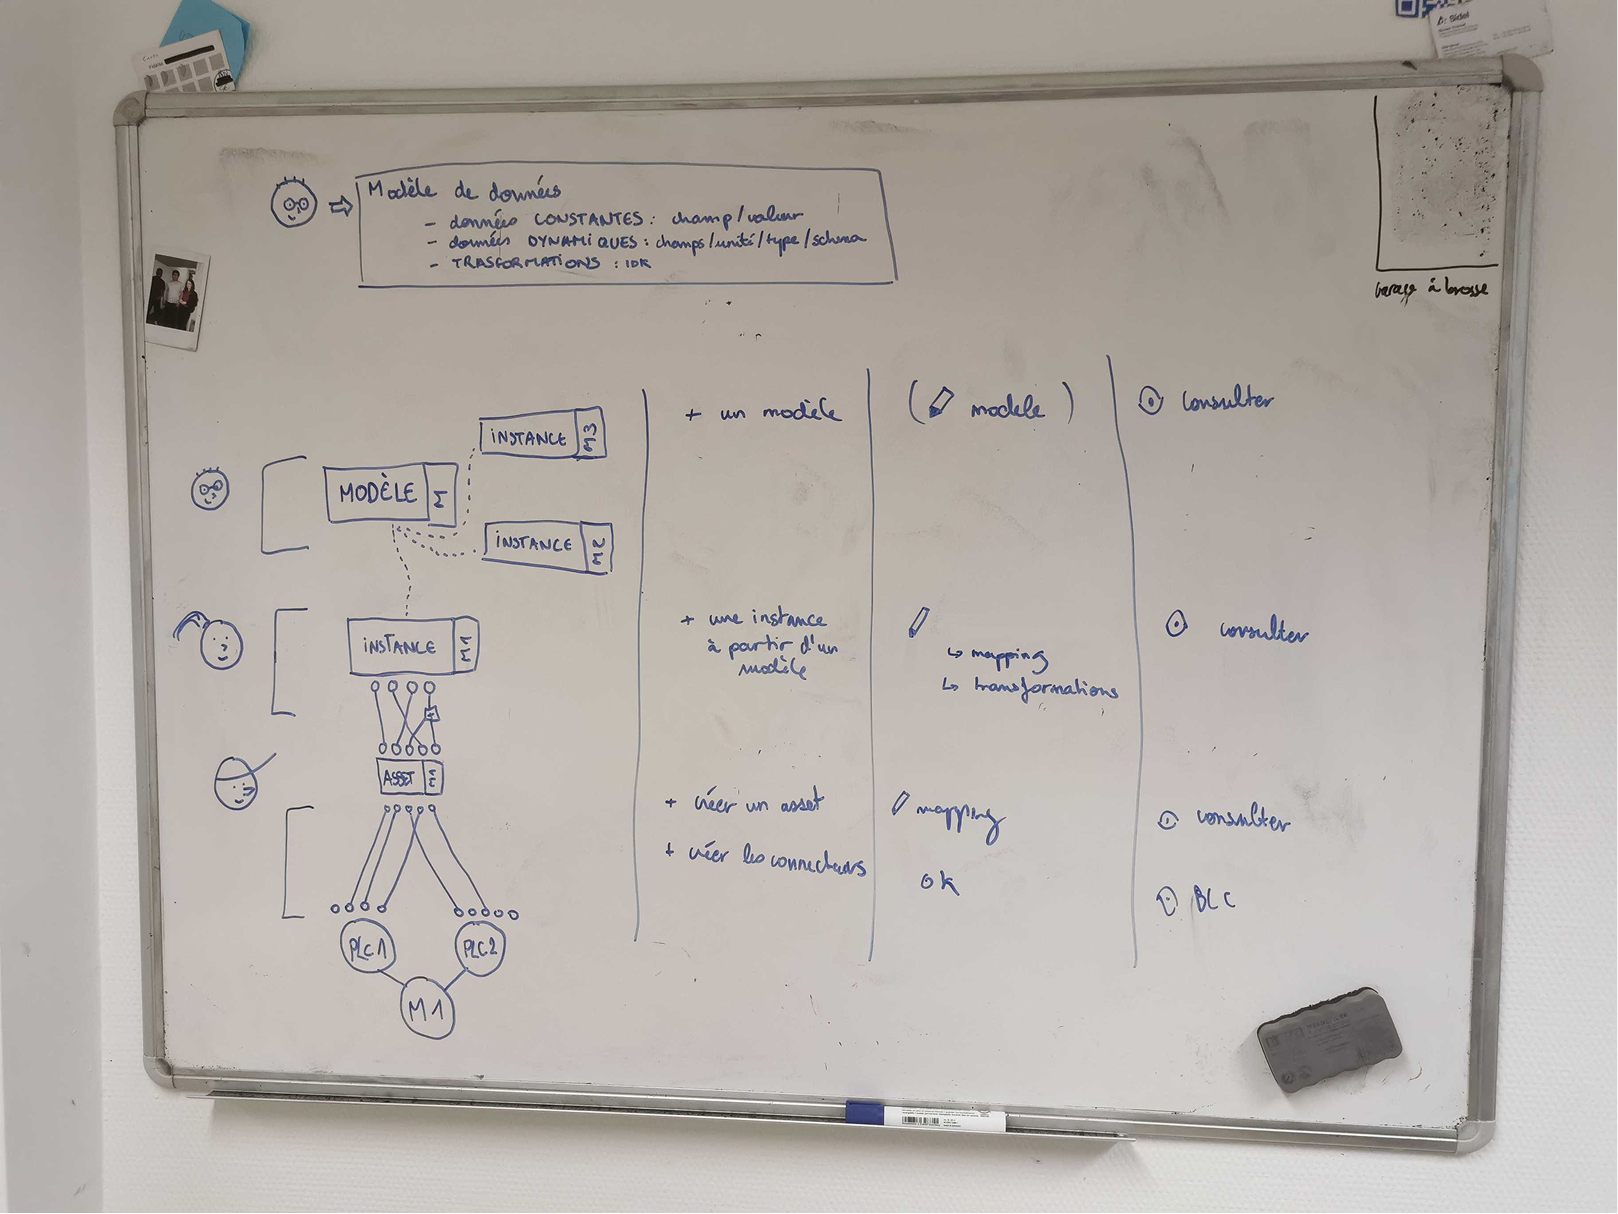 Sidel
Modèle de données
- données CONSTANTES : champ/valeur
- données DYNAMIQUES : champs/unité/type/schema
- TRASFORMATIONS : IDK
Garage à brosse
INSTANCE M3
MODÈLE M
INSTANCE M2
+ un modèle
( modèle )
consulter
INSTANCE M1
+ une instance
à partir d'un
modèle
↳ mapping
↳ transformations
consulter
ASSET M1
+ créer un asset
+ créer les connecteurs
mapping
ok
consulter
BLC
PLC1
PLC2
M1